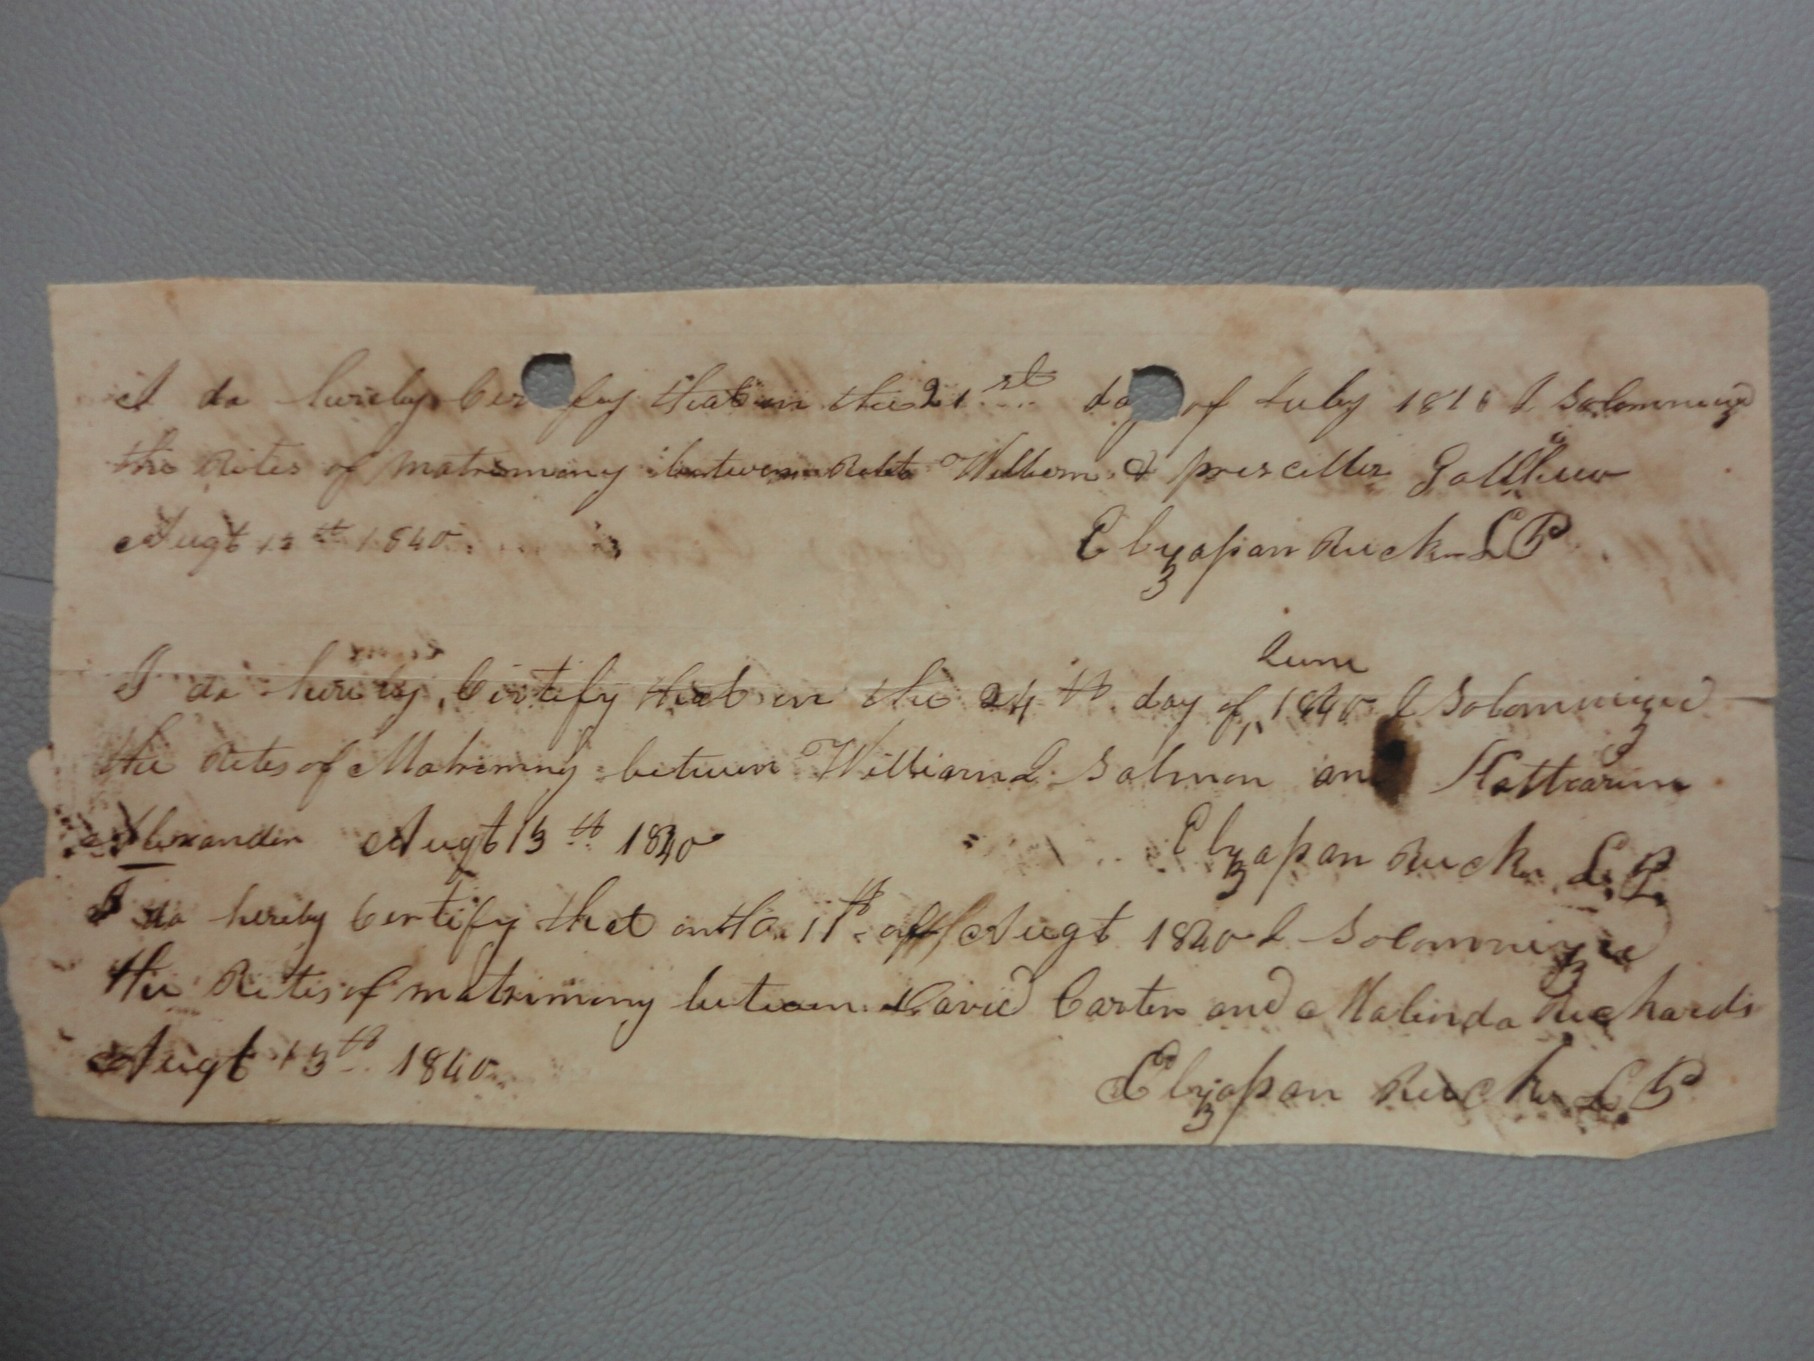 I do hereby Cer fy that on the 21st day of July 18 I Solomnized
the Rites of matrimony between Robt Welbern & prisceller
Augt 13th 1840. Elyzaphan Rucker L P
I do hereby Certify that on the 24th day of June 1840 I Solomnized
the Rites of Matrimny between William L Salmon and Kattearine
Alexander Augt 13th 1840 Elyzaphan Rucker L. P.
I do hereby Certify that on the 11th of Augt 1840 I Solomnized
the Rites of matrimony between David Carter and Malinda Richards
Augt 13th 1840. Elyzaphan Rucker L. P